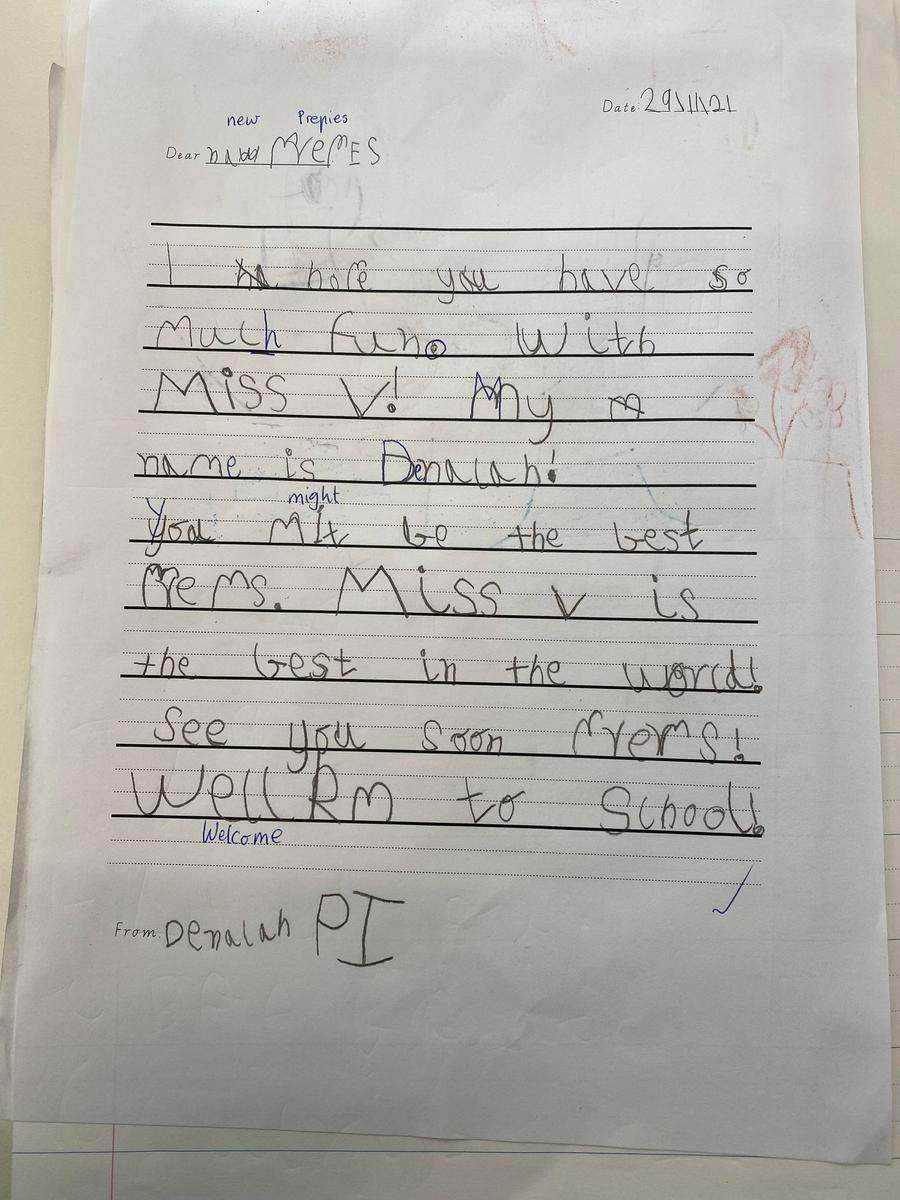 Date: 29/11/21
new Prepies
Dear PrePES
I hope you have so
Much fun. With
Miss V! My
name is Denalah!
might
You Mit be the best
PrePs. Miss v is
the best in the world!
See you soon PrePs!
Well km to School!
Welcome
From: Denalah PI